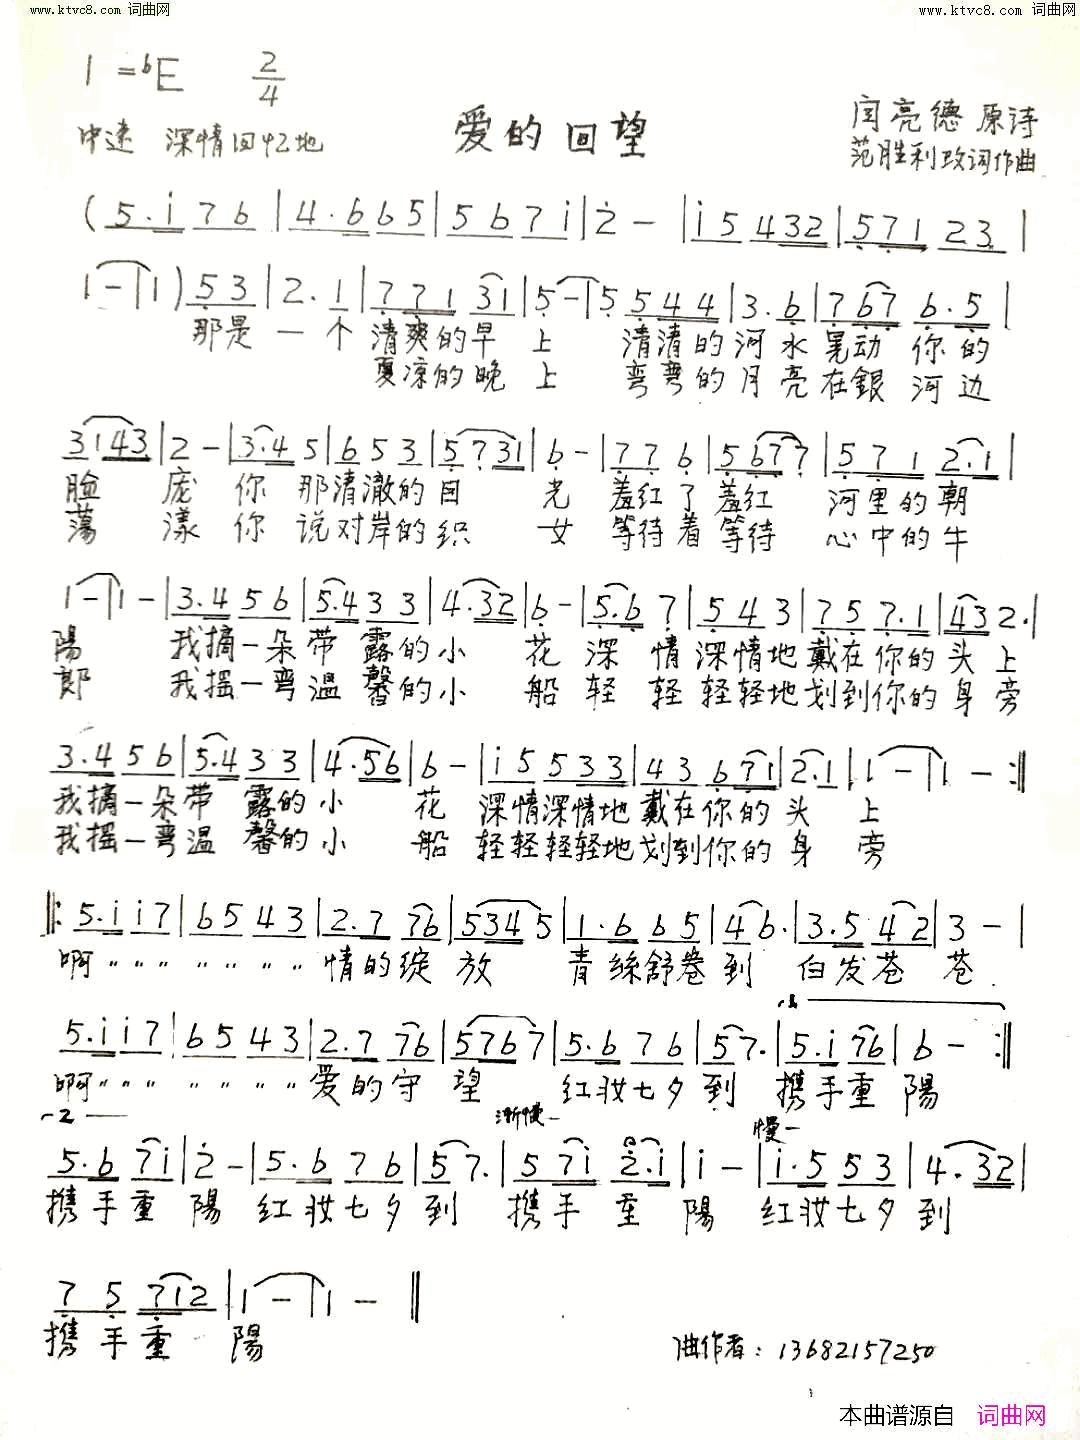 www.ktvc8.com 词曲网 www.ktvc8.com 词曲网
1=bE 2/4
中速 深情回忆地
爱的回望
闫亮德 原诗
范胜利改词作曲
(5.i 7 6 | 4.6 6 5 | 5 6 7 i | 2 - | i 5 4 3 2 | 5 7 1 2 3 |
1 - | 1 ) 5 3 | 2. 1 | 7 7 1 3 1 | 5 - | 5 5 4 4 | 3. 6 | 7 6 7 6. 5 |
那是一个清爽的早上 清清的河水晃动你的
夏凉的晚上 弯弯的月亮在銀河边
3 1 4 3 | 2 - | 3.4 5 | 6 5 3 | 5 7 3 1 | 6 - | 7 7 6 | 5 6 7 7 | 5 7 1 2.1 |
脸庞你那清澈的目光羞红了羞红 河里的朝
荡漾你说对岸的织女等待着等待 心中的牛
1 - | 1 - | 3.4 5 6 | 5.4 3 3 | 4.3 2 | 6 - | 5.6 7 | 5 4 3 | 7 5 7.1 | 4 3 2. |
陽 我摘一朵带露的小花深情深情地戴在你的头上
郎 我摇一弯温馨的小船轻轻轻轻地划到你的身旁
3.4 5 6 | 5.4 3 3 | 4.5 6 | 6 - | i 5 5 3 3 | 4 3 6 7 1 | 2.1 | 1 - | 1 - :||
我摘一朵带露的小花 深情深情地戴在你的头上
我摇一弯温馨的小船 轻轻轻轻地划到你的身旁
||: 5.i i 7 | 6 5 4 3 | 2.7 7 6 | 5 3 4 5 | 1.6 6 5 | 4 6. | 3.5 4 2 | 3 - |
啊〃〃〃〃〃〃〃情的绽放 青絲舒卷到 白发苍苍
1.
5.i i 7 | 6 5 4 3 | 2.7 7 6 | 5 7 6 7 | 5.6 7 6 | 5 7. | 5.i 7 6 | 6 - :||
啊〃〃〃〃〃〃〃爱的守望 红妆七夕到 携手重陽
2. 渐慢 慢
5.6 7 i | 2 - | 5.6 7 6 | 5 7. | 5 7 i 2.i | i - | i.5 5 3 | 4.3 2 |
携手重陽 红妆七夕到 携手重陽 红妆七夕到
7 5 7 1 2 | 1 - | 1 - ||
携手重陽
曲作者：13682157250
本曲谱源自 词曲网